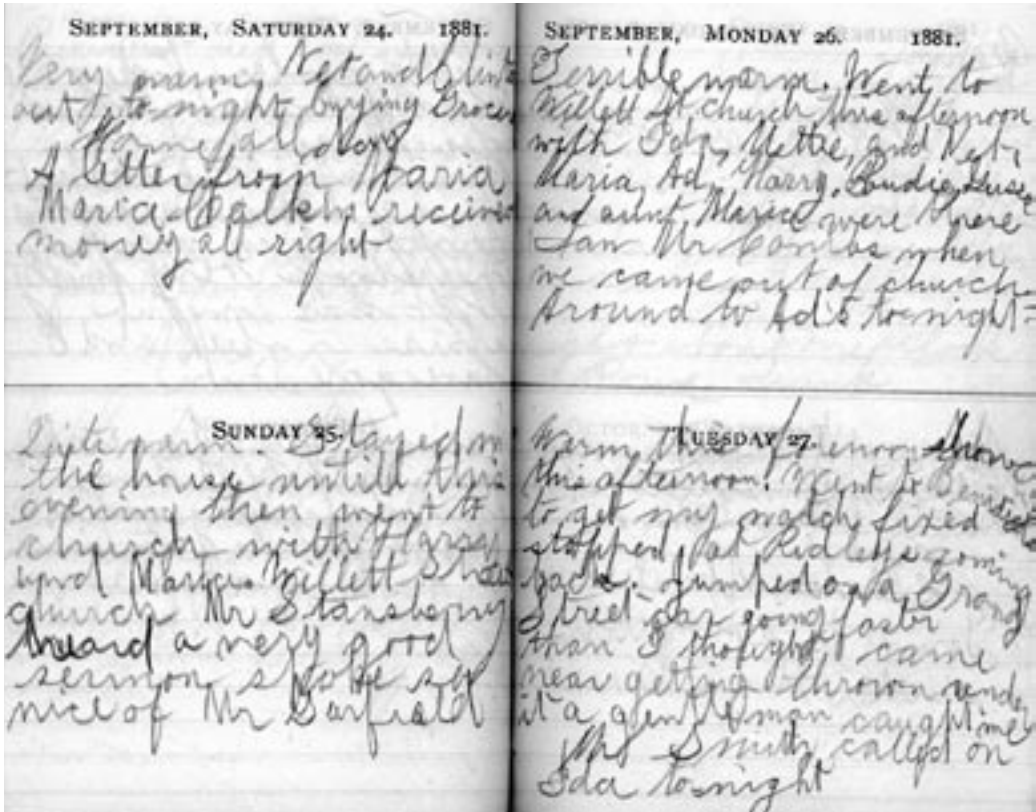 SEPTEMBER, SATURDAY 24. 1881.
Very warm Net and
out to-night buying Grocer
Home all day
A letter from Maria
Maria Calkin received
money all right
SUNDAY 25.
Quite warm. Stayed in
the house untill this
evening then went to
church with Harry
and Maria. Willett Street
church Mr Stansberry
heard a very good
sermon spoke so
nice of Mr Garfield
SEPTEMBER, MONDAY 26. 1881.
Terrible warm. Went to
Willett St. church this afternoon
with Ida, Mettie, and Net,
Maria, Ad, Harry,
and aunt Maria were there
Saw Mr Combs when
we came out of church
Around to Ad's to-night
TUESDAY 27.
Warm this forenoon Shower
this afternoon. Went to
to get my watch fixed
stopped at Ridleys coming
back. Jumped on a Grand
Street car going faster
than I thought, came
near getting thrown under
it a gentleman caught me
Mr Smith called on
Ida to-night